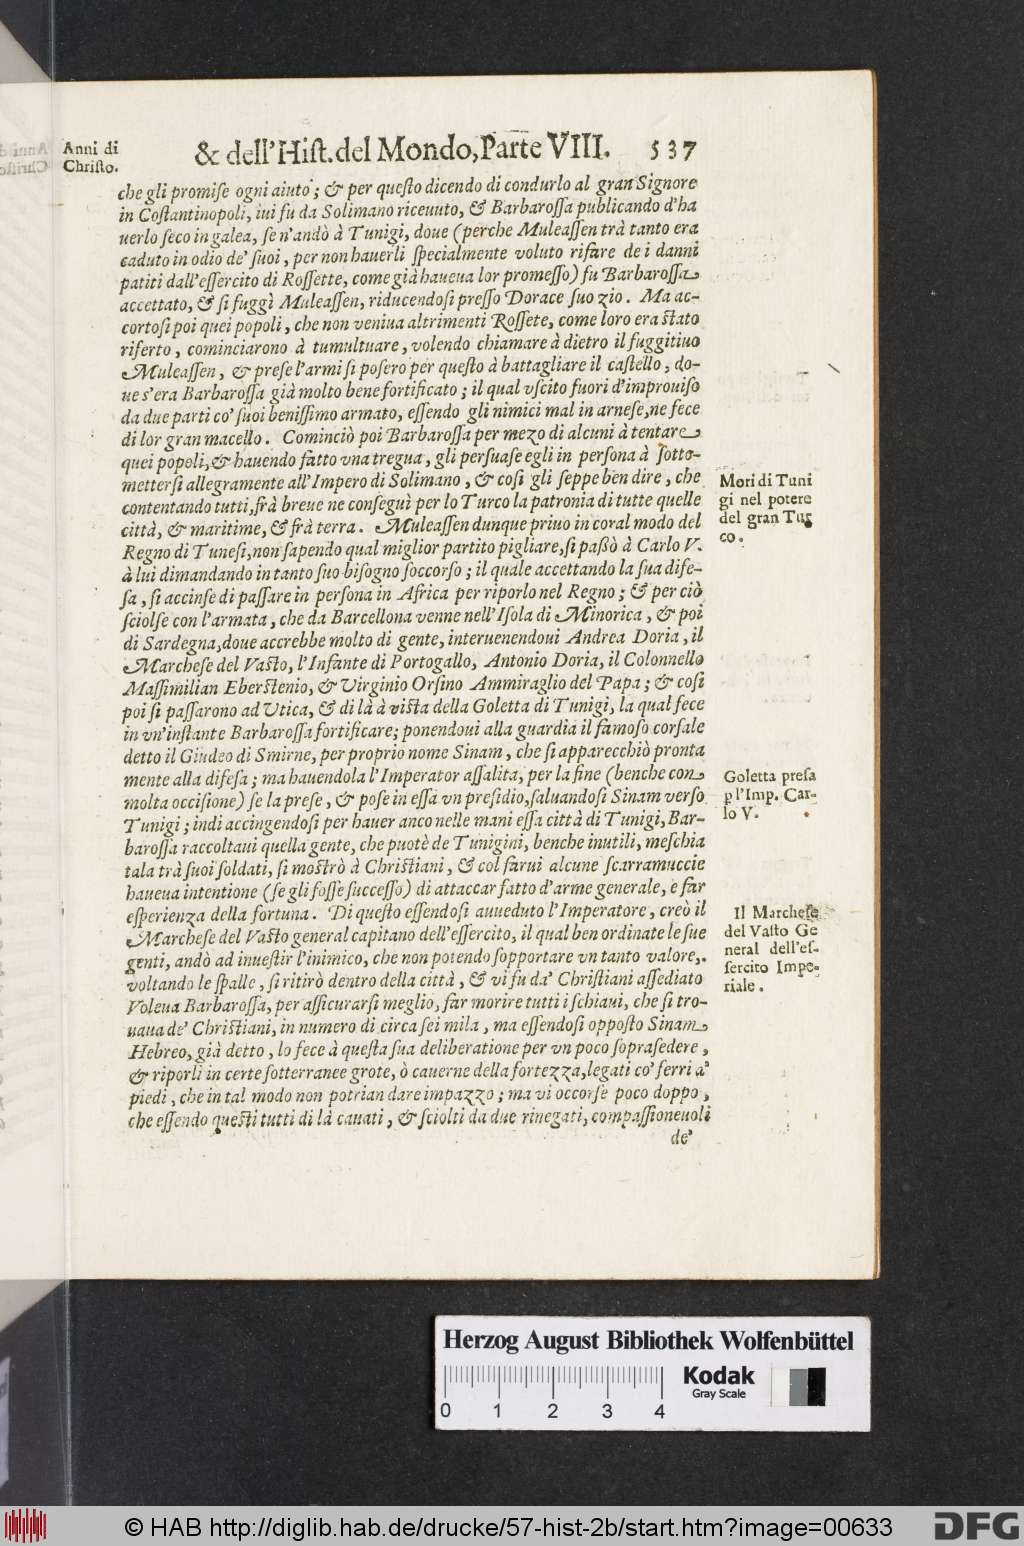 Anni di
Christo.
& dell'Hist. del Mondo, Parte VIII. 537
che gli promise ogni aiuto; & per questo dicendo di condurlo al gran Signore
in Costantinopoli, iui fu da Solimano riceuuto, & Barbarossa publicando d'ha
uerlo seco in galea, se n'andò à Tunigi, doue (perche Muleassen trà tanto era
caduto in odio de' suoi, per non hauerli specialmente voluto rifare de i danni
patiti dall'essercito di Rossette, come già haueua lor promesso) fu Barbarossa
accettato, & si fuggì Muleassen, riducendosi presso Dorace suo zio. Ma ac-
cortosi poi quei popoli, che non veniua altrimenti Rossete, come loro era stato
riferto, cominciarono à tumultuare, volendo chiamare à dietro il fuggitiuo
Muleassen, & prese l'armi si posero per questo à battagliare il castello, do-
ue s'era Barbarossa già molto bene fortificato; il qual vscito fuori d'improuiso
da due parti co' suoi benissimo armato, essendo gli nimici mal in arnese, ne fece
di lor gran macello. Cominciò poi Barbarossa per mezo di alcuni à tentare
quei popoli, & hauendo fatto vna tregua, gli persuase egli in persona à sotto-
mettersi allegramente all'Impero di Solimano, & così gli seppe ben dire, che
contentando tutti, frà breue ne conseguì per lo Turco la patronia di tutte quelle
città, & maritime, & frà terra. Muleassen dunque priuo in coral modo del
Regno di Tunesi, non sapendo qual miglior partito pigliare, si paßò à Carlo V.
à lui dimandando in tanto suo bisogno soccorso; il quale accettando la sua dife-
sa, si accinse di passare in persona in Africa per riporlo nel Regno; & per ciò
sciolse con l'armata, che da Barcellona venne nell'Isola di Minorica, & poi
di Sardegna, doue accrebbe molto di gente, interuenendoui Andrea Doria, il
Marchese del Vasto, l'Infante di Portogallo, Antonio Doria, il Colonnello
Massimilian Eberstenio, & Virginio Orsino Ammiraglio del Papa; & così
poi si passarono ad Vtica, & di là à vista della Goletta di Tunigi, la qual fece
in vn'instante Barbarossa fortificare; ponendoui alla guardia il famoso corsale
detto il Giudeo di Smirne, per proprio nome Sinam, che si apparecchiò pronta
mente alla difesa; ma hauendola l'Imperator assalita, per la fine (benche con
molta occisione) se la prese, & pose in essa vn presidio, saluandosi Sinam verso
Tunigi; indi accingendosi per hauer anco nelle mani essa città di Tunigi, Bar-
barossa raccoltaui quella gente, che puotè de Tunigini, benche inutili, meschia
tala trà suoi soldati, si mostrò à Christiani, & col farui alcune scarramuccie
haueua intentione (se gli fosse successo) di attaccar fatto d'arme generale, e far
esperienza della fortuna. Di questo essendosi auueduto l'Imperatore, creò il
Marchese del Vasto general capitano dell'essercito, il qual ben ordinate le sue
genti, andò ad inuestir l'inimico, che non potendo sopportare vn tanto valore,.
voltando le spalle, si ritirò dentro della città, & vi fu da' Christiani assediato
Voleua Barbarossa, per assicurarsi meglio, far morire tutti i schiaui, che si tro-
uaua de' Christiani, in numero di circa sei mila, ma essendosi opposto Sinam
Hebreo, già detto, lo fece à questa sua deliberatione per vn poco soprasedere,
& riporli in certe sotterranee grote, ò cauerne della fortezza, legati co' ferri a'
piedi, che in tal modo non potrian dare impazzo; ma vi occorse poco doppo,
che essendo questi tutti di là cauati, & sciolti da due rinegati, compassioneuoli
de'
Mori di Tuni
gi nel potere
del gran Tur
co.
Goletta presa
p l'Imp. Car-
lo V.
Il Marchese
del Vasto Ge
neral dell'es-
sercito Impe-
riale.
Herzog August Bibliothek Wolfenbüttel
Kodak
Gray Scale
0 1 2 3 4
© HAB http://diglib.hab.de/drucke/57-hist-2b/start.htm?image=00633
DFG